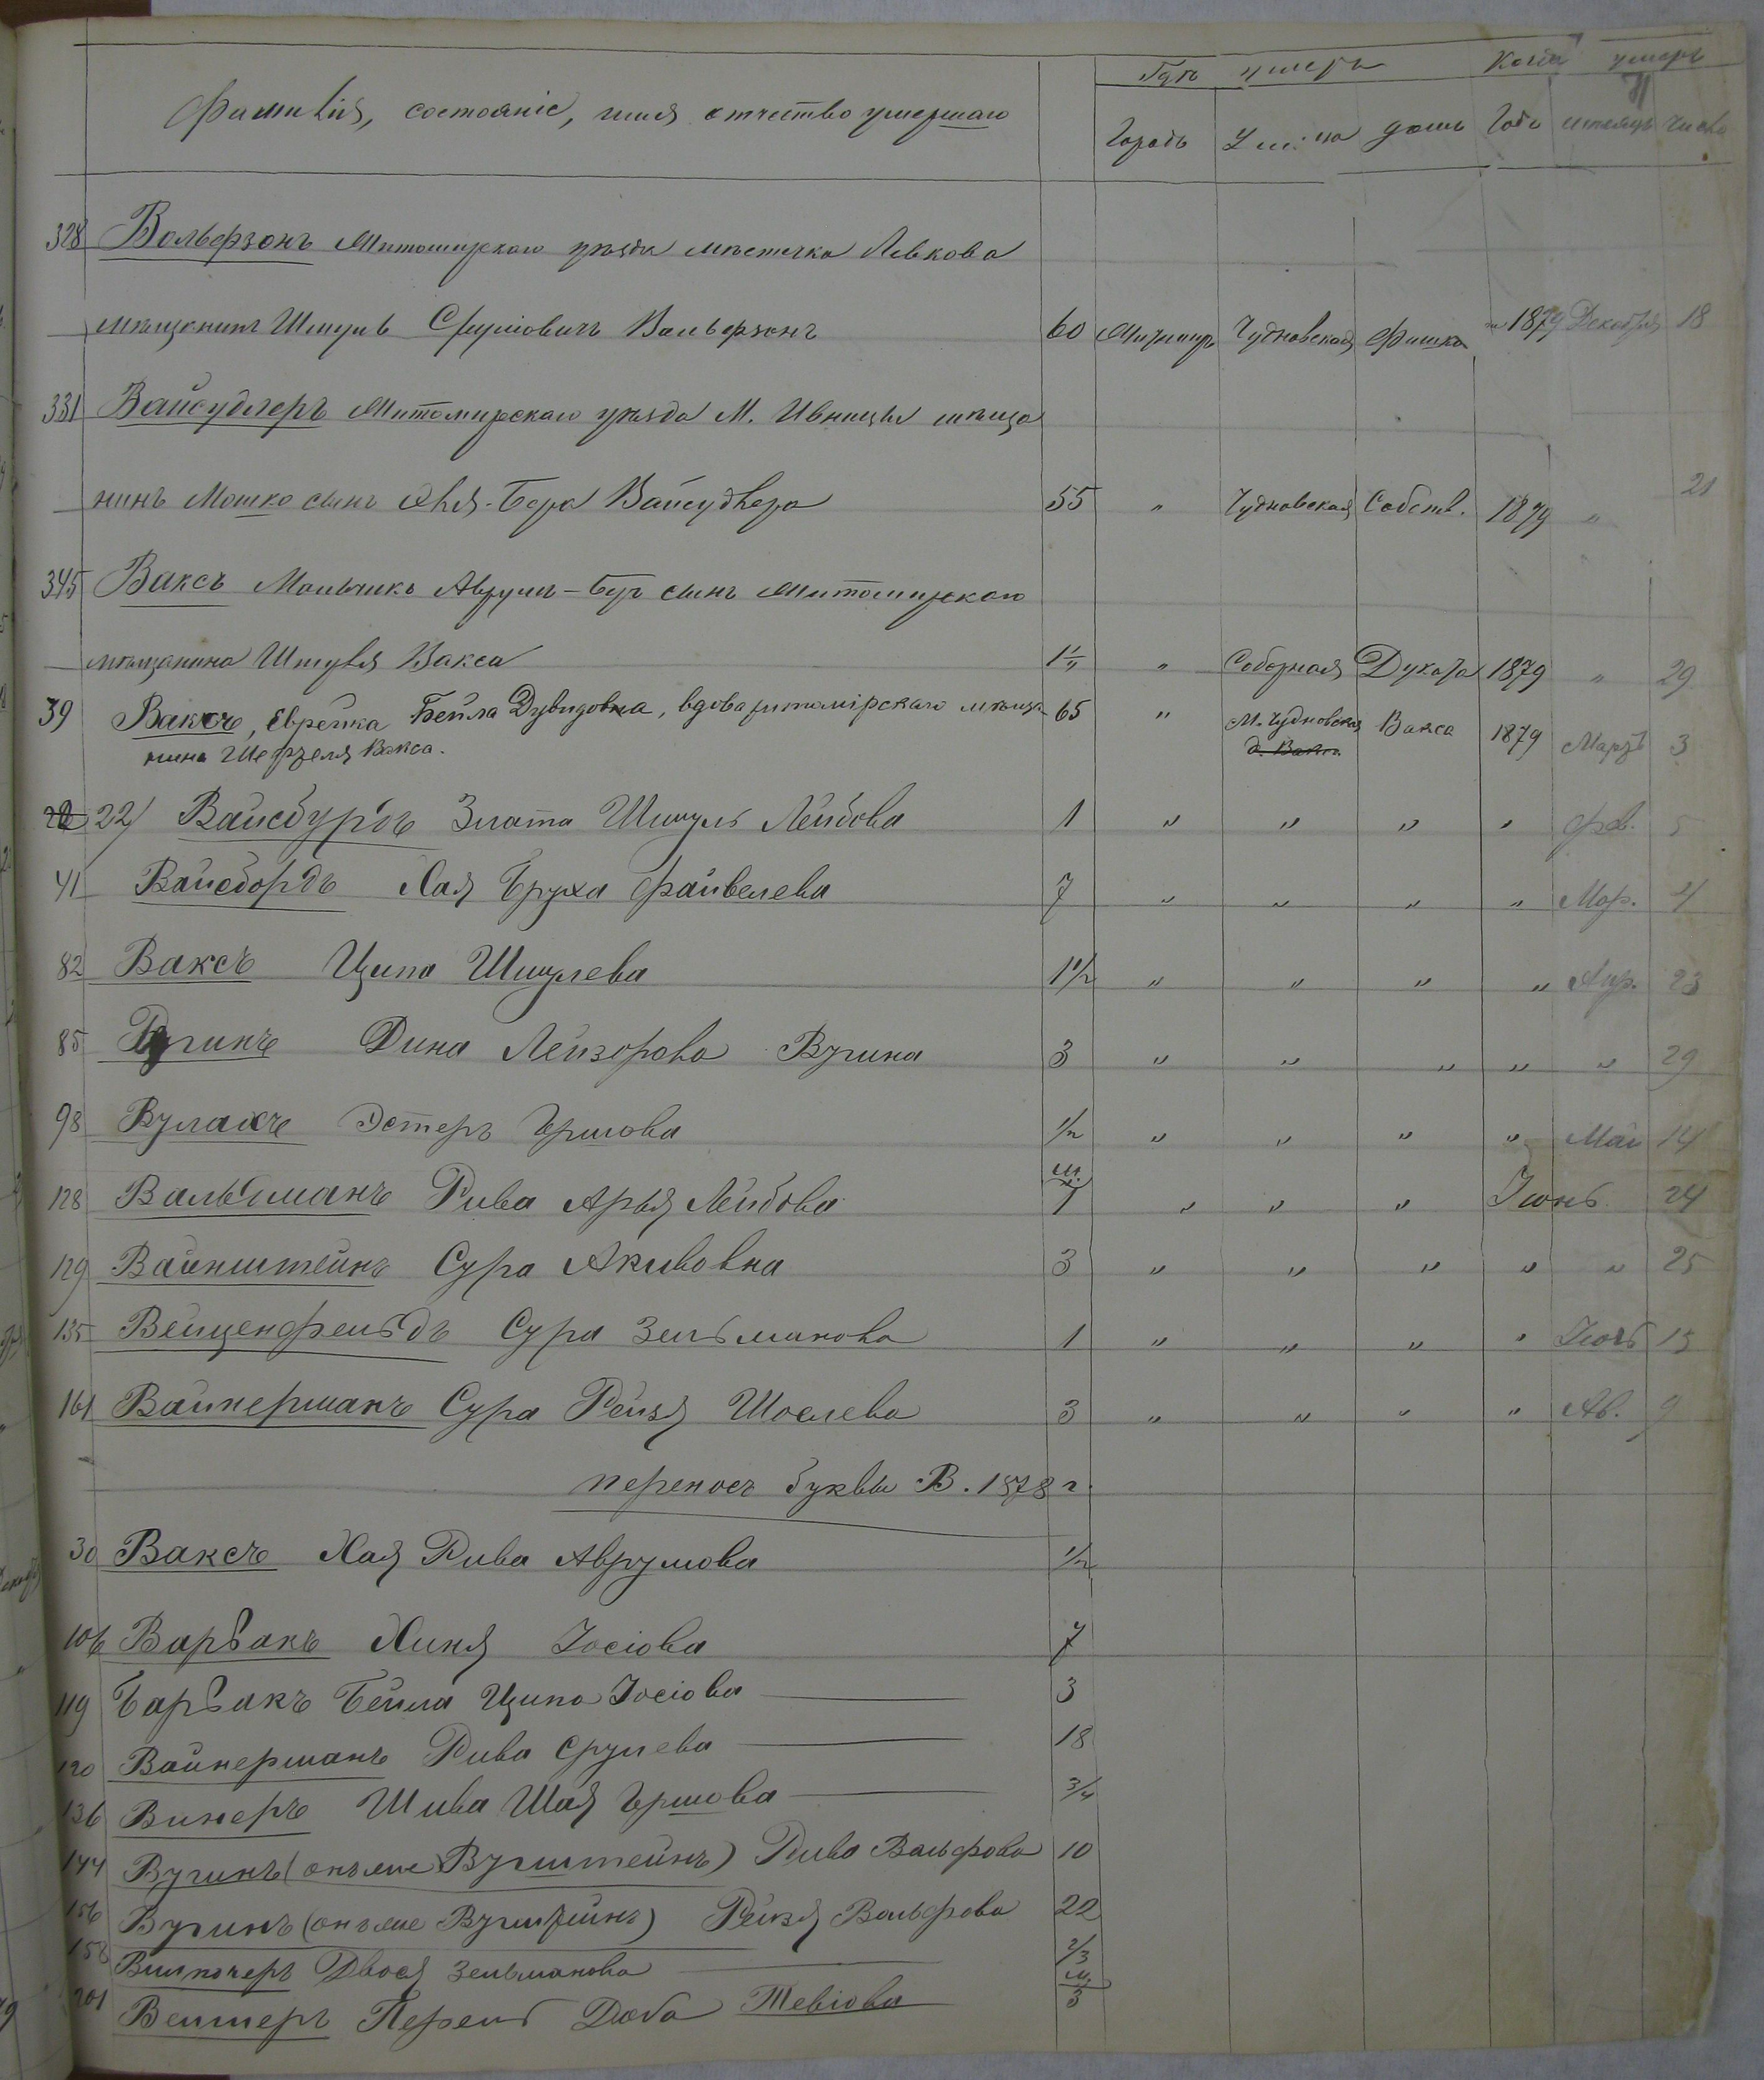 Гдѣ умеръ Когда умеръ
Фамилія, состояніе, имя отчество умершаго
Городъ Улица домъ Годъ мѣсяцъ число
328 Вольфзонъ Житомирскаго уѣзда мѣстечка Левкова
мѣщанинъ Шмуль Сруліовичъ Вольфзонъ 60 Житомиръ Чудновская Фишка 1879 Декабря 18
331 Вайсудлеръ Житомирскаго уѣзда М. Ивницы мѣща
нинъ Мошко сынъ Бера 55 " Чудновская Собств. 1879 " 21
345 Ваксъ Мальчикъ Аврумъ-Беръ сынъ Житомирскаго
мѣщанина Шмуля Вакса " Соборная Дукара 1879 " 29
39 Ваксъ, Еврейка Бейла Дувидовна, вдова житомірскаго мѣща- 65 " М. Чудновская Вакса 1879 Мартъ 3
нина Вакса.
22 Вайсбурдъ Злата Шмуль Лейбова 1 " " " " фев. 5
41 Вайсбордъ Хая Бруха Файвелева 7 " " " " Мар. 4
82 Ваксъ Ципа Шмулева 1 1/2 " " " " Апр. 23
85 Вугинъ Дина Лейзорова Вугина 3 " " " " " 29
98 Вулахъ Эстеръ Гершова 1/2 " " " " Май 14
128 Вальтманъ Рива Арья Лейбова м. 7 " " " Іюнь 24
129 Вайнштейнъ Сура Акивовна 3 " " " " " 25
135 Вейценфельдъ Сура Зельманова 1 " " " " Іюль 15
161 Вайнерманъ Сура Рейзя Шоелева 3 " " " " Ав. 9
переносъ буквы В. 1878 г.
30 Ваксъ Хая Рива Аврумова 1/2
106 Варвакъ Хиня Іосіова 7
119 Варвакъ Бейла Ципа Іосіова 3
120 Вайнерманъ Рива Срулева 18
136 Винеръ Шива Шая Гершова 3/4
144 Вугинъ (онъ же Вугштейнъ) Рива Вольфова 10
156 Вугинъ (онъ же Вугштейнъ) Рейзя Вольфова 22
158 Двося Зельманова 2/3
201 Перель Доба Тевіова м. 3